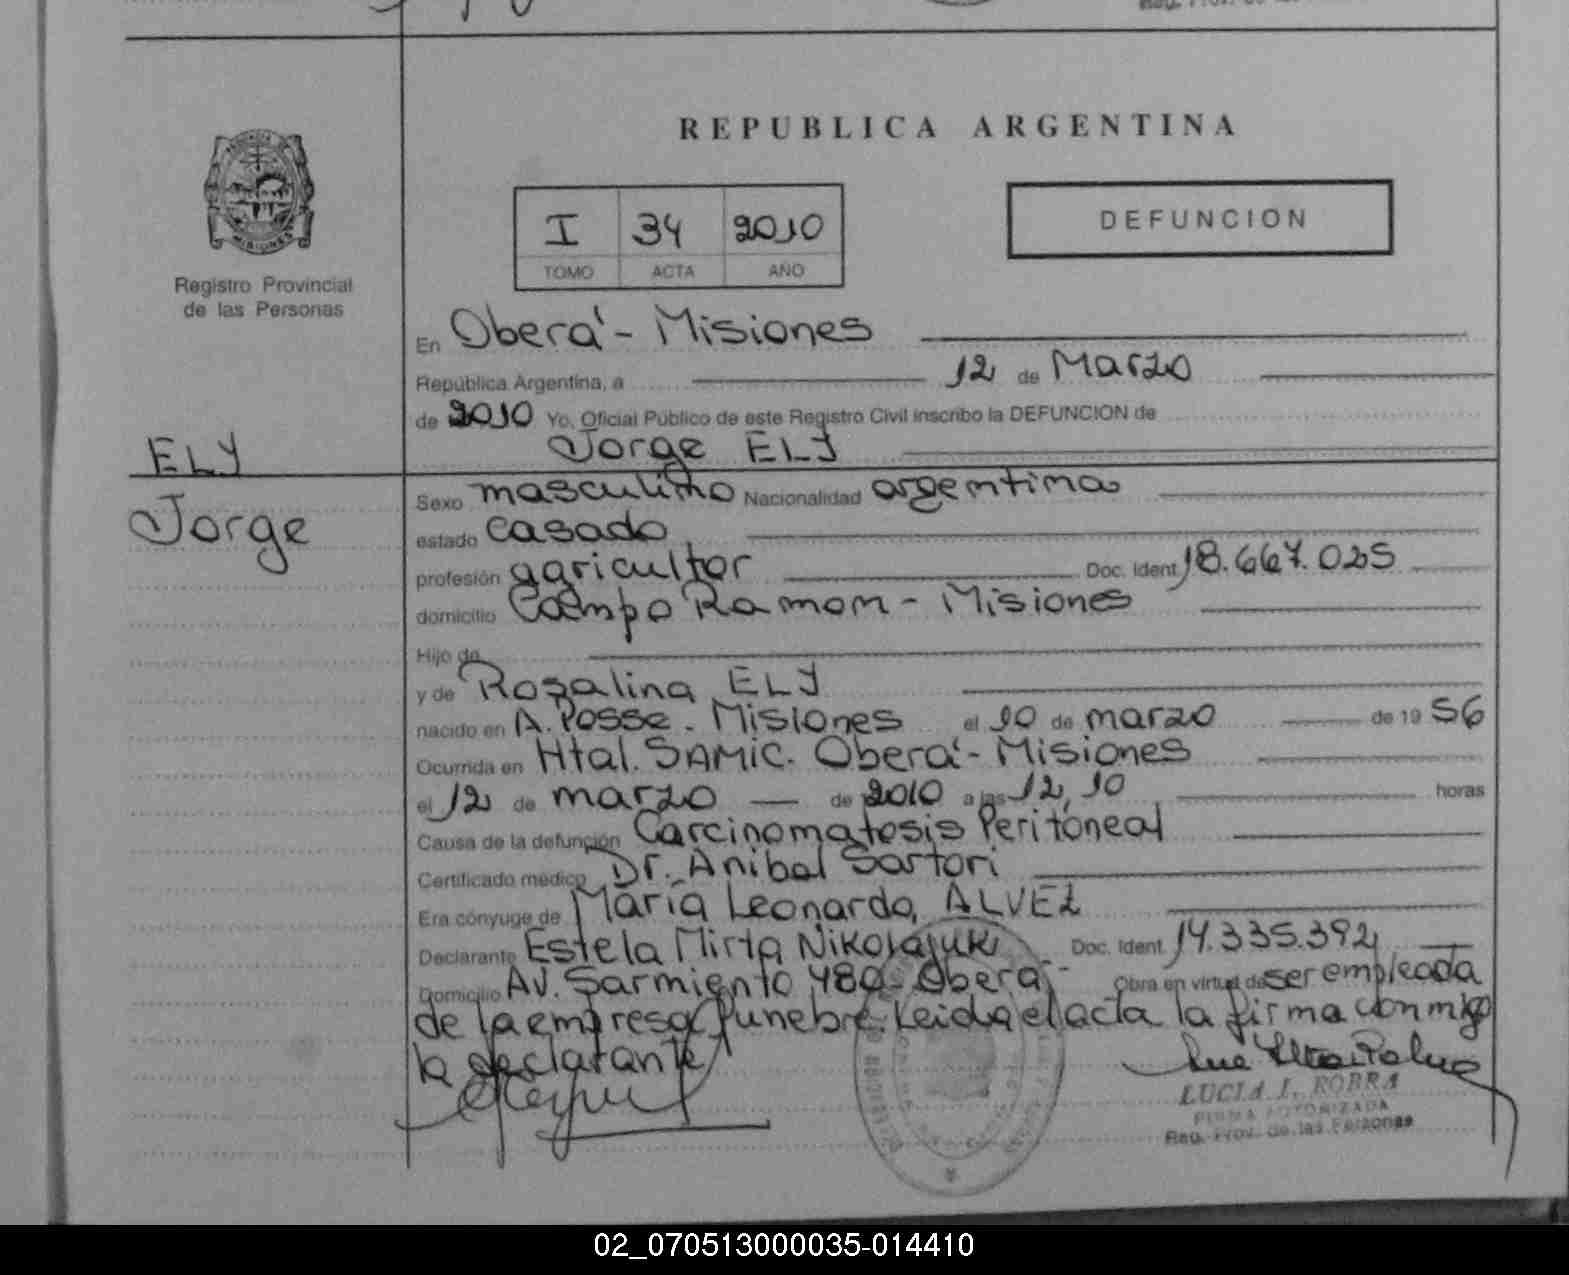 REPUBLICA ARGENTINA
I 34 2010
TOMO ACTA AÑO
DEFUNCION
MISIONES
Registro Provincial
de las Personas
En Oberá - Misiones
República Argentina, a 12 de Marzo
de 2010 Yo, Oficial Público de este Registro Civil inscribo la DEFUNCION de
Jorge ELY
ELY
Jorge
Sexo masculino Nacionalidad argentina
estado casado
profesión agricultor Doc. Ident. 18.667.025
domicilio Campo Ramon - Misiones
Hijo de
y de Rosalina ELY
nacido en A. Posse - Misiones el 10 de marzo de 19 56
Ocurrida en Htal. SAMIC. Oberá - Misiones
el 12 de marzo de 2010 a las 12,10 horas
Causa de la defunción Carcinomatosis Peritoneal
Certificado médico Dr. Anibal Sartori
Era cónyuge de María Leonarda ALVEZ
Declarante Estela Mirta Nikolajuk Doc. Ident. 14.335.392
Domicilio Av. Sarmiento 480 - Oberá - Obra en virtud de ser empleada
de la empresa funebre. Leida el acta la firma conmigo
la declarante
LUCIA I. ROBRA
FIRMA AUTORIZADA
Reg. Prov. de las Personas
02_070513000035-014410